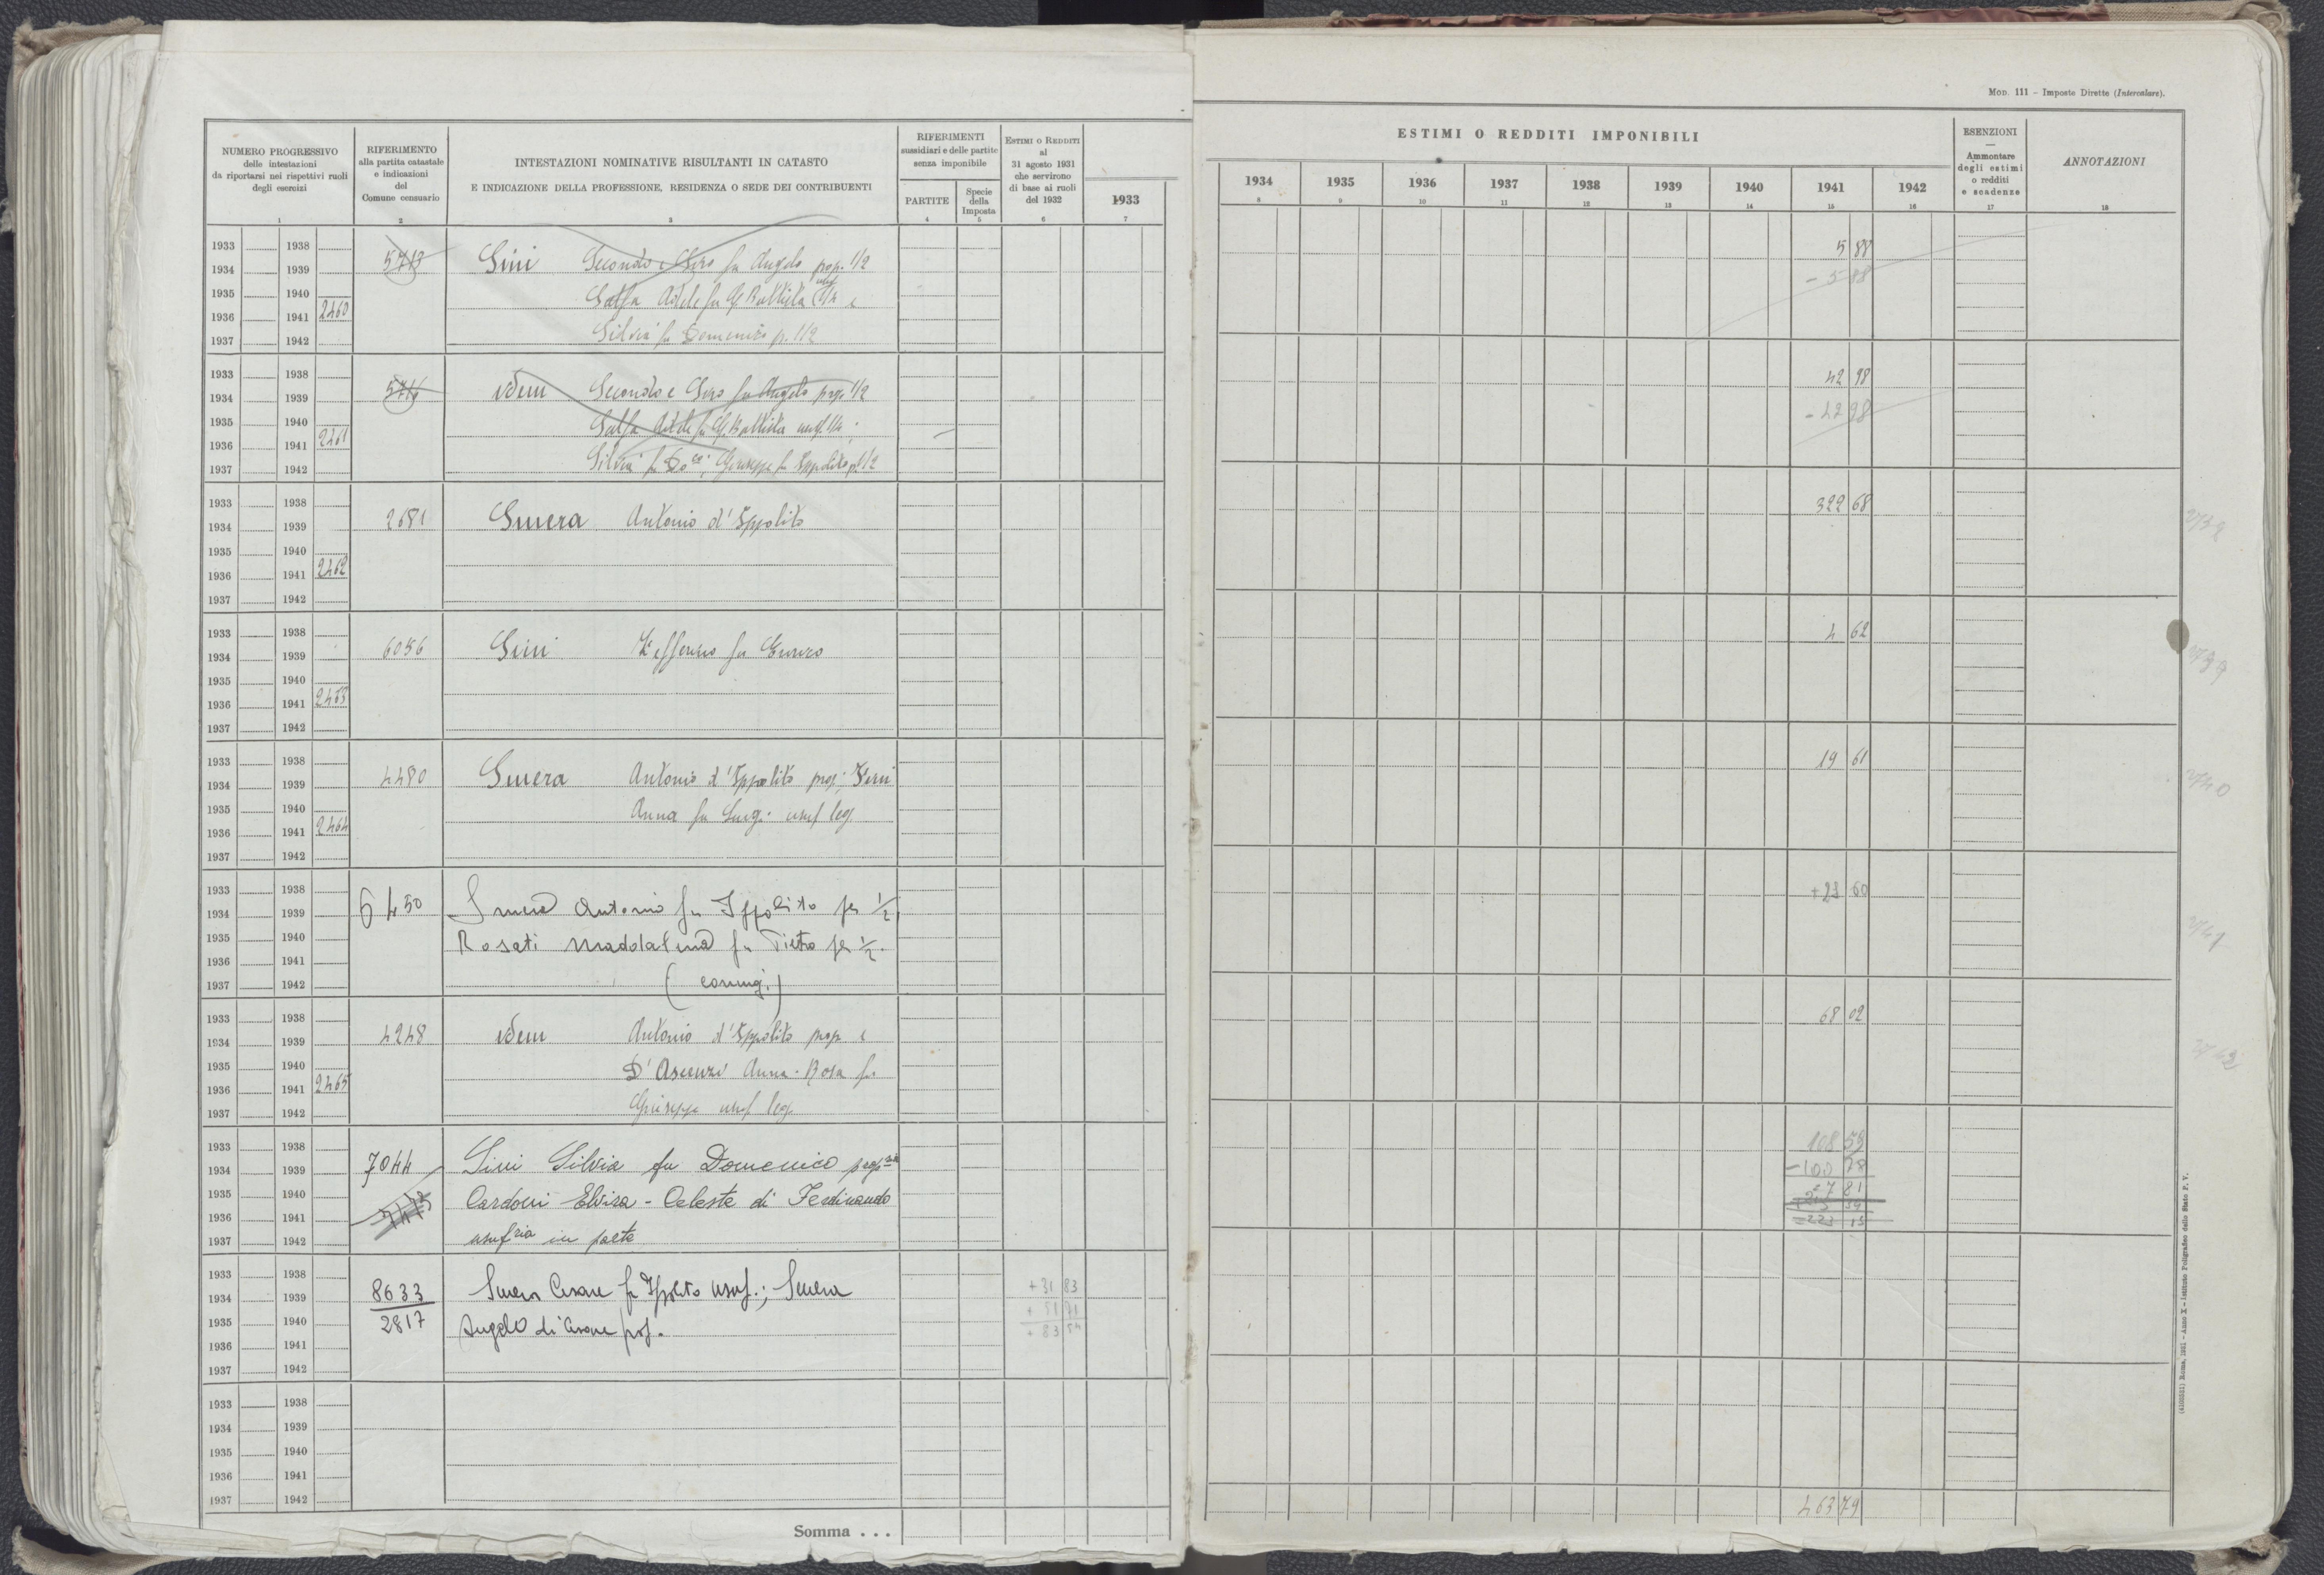 MOD. 111 - Imposte Dirette (Intercalare).
NUMERO PROGRESSIVO
delle intestazioni
da riportarsi nei rispettivi ruoli
degli esercizi
1
RIFERIMENTO
alla partita catastale
e indicazioni
del
Comune censuario
2
INTESTAZIONI NOMINATIVE RISULTANTI IN CATASTO
E INDICAZIONE DELLA PROFESSIONE, RESIDENZA O SEDE DEI CONTRIBUENTI
3
RIFERIMENTI
sussidiari e delle partite
senza imponibile
PARTITE
4
Specie
della
Imposta
5
ESTIMI O REDDITI
al
31 agosto 1931
che servirono
di base ai ruoli
del 1932
6
1933
7
ESTIMI O REDDITI IMPONIBILI
1934 1935 1936 1937 1938 1939 1940 1941 1942
8 9 10 11 12 13 14 15 16
ESENZIONI
—
Ammontare
degli estimi
o redditi
e scadenze
17
ANNOTAZIONI
18
1933 1938 5713 Sini Secondo e Siro fu Angelo prop. 1/2 5 88
1934 1939 - 5 88
1935 1940 Adele fu G. Battista usuf 1/4 e
1936 1941 2460
1937 1942 Silvia fu Domenico p. 1/2
1933 1938 42 98
1934 1939 Idem Secondo e Siro fu Angelo prop 1/2
1935 1940 - 42 98
1936 1941 2461 Adele fu G. Battista usuf. 1/4;
1937 1942 Silvia fu Do co; Giuseppe fu Ippolito p. 1/2
1933 1938 322 68
1934 1939 2681 Smera Antonio d'Ippolito
1935 1940
1936 1941 2462
1937 1942
1933 1938 4 62
1934 1939 6056 Sini Zefferino fu
1935 1940
1936 1941 2463
1937 1942
1933 1938 19 61
1934 1939 4480 Smera Antonio d'Ippolito prop;
1935 1940 Anna fu Luigi usuf leg. 2740
1936 1941 2464
1937 1942
1933 1938 +23 60
1934 1939 6450 Smera Antonio fu Ippolito per 1/2,
1935 1940 Rosati Maddalena fu Pietro per 1/2. 2741
1936 1941
1937 1942 (coniugi)
1933 1938 68 02
1934 1939 4248 Idem Antonio d'Ippolito prop e
1935 1940 D'Ascenzi Anna-Rosa fu
1936 1941 2465
1937 1942 Giuseppe usuf leg.
1933 1938 108 59
1934 1939 7044 Sini Silvia fu Domenico propria - 100 78
1935 1940 Cardoni Elvira - Celeste di Ferdinando 7 81
1936 1941
1937 1942 usufria in parte
1933 1938 8633 Smera Cesare fu Ippolito usuf.; Smera +31 83
1934 1939 + 51 71
1935 1940 2817 Angelo di Cesare prop. + 83 54
1936 1941
1937 1942
1933 1938
1934 1939
1935 1940
1936 1941
1937 1942
463 79
Somma . . .